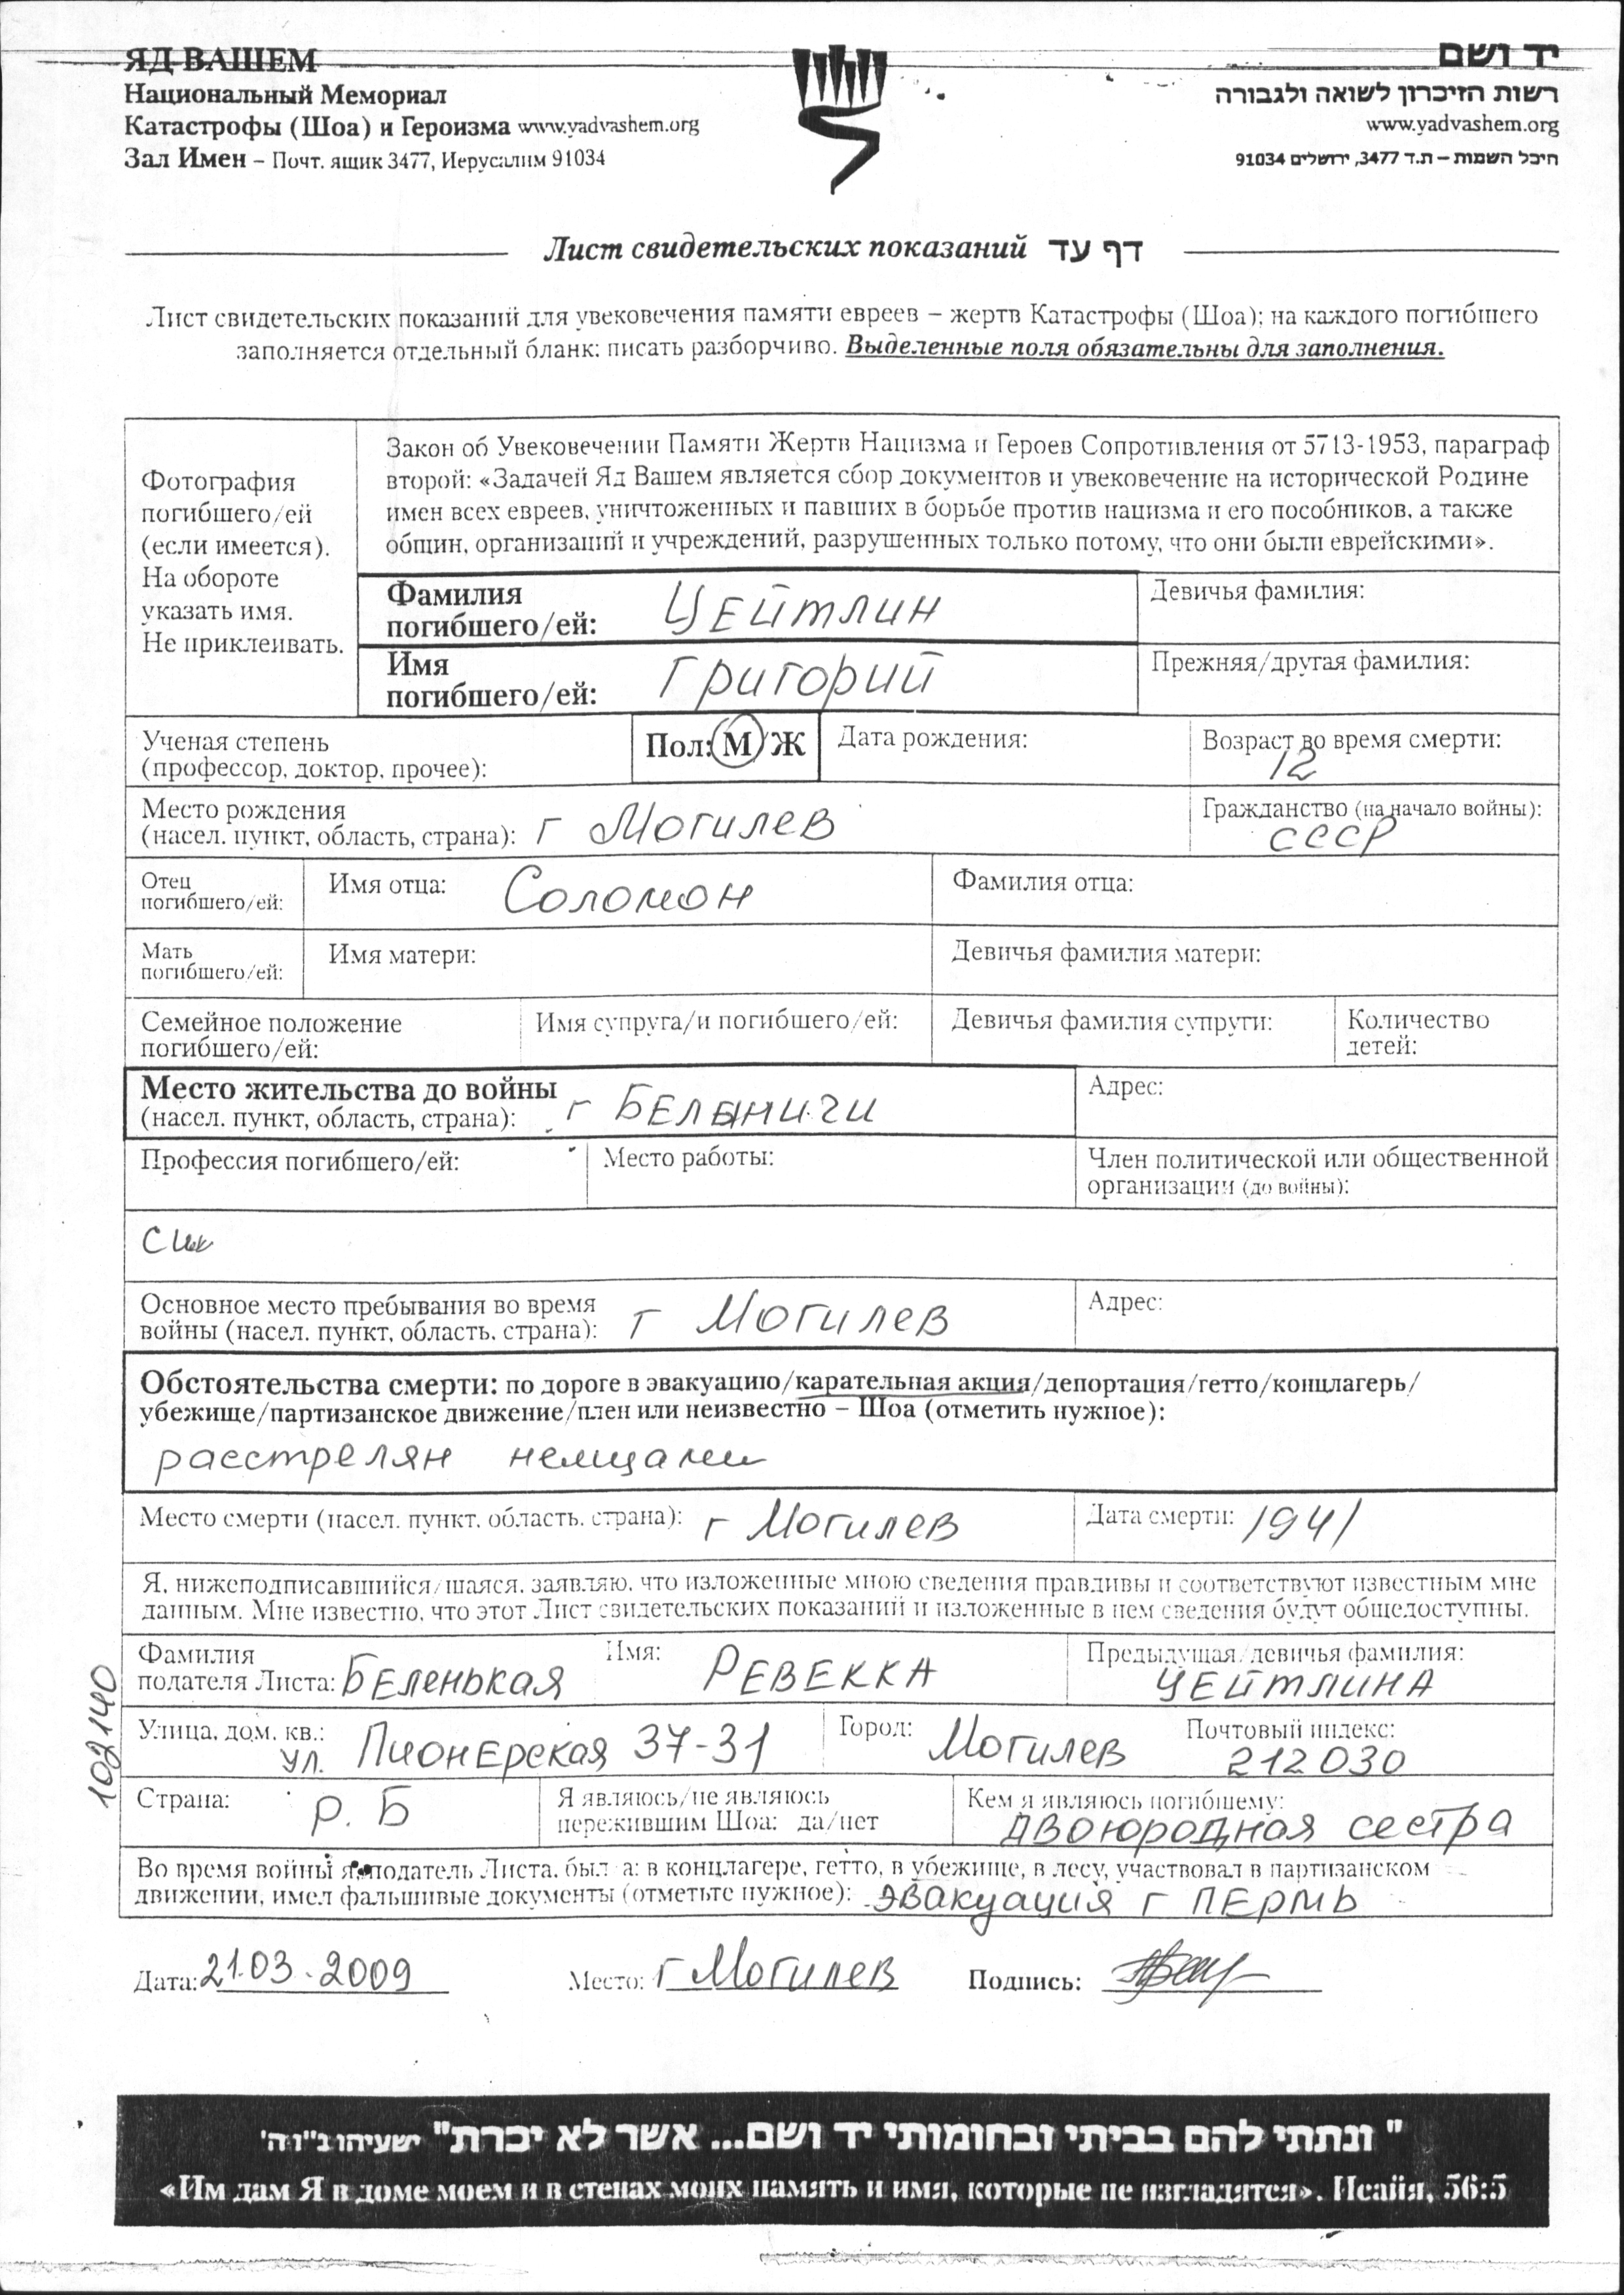 ЯД ВАШЕМ
Национальный Мемориал
Катастрофы (Шоа) и Героизма www.yadvashem.org
Зал Имен – Почт. ящик 3477, Иерусалим 91034
יד ושם
רשות הזיכרון לשואה ולגבורה
www.yadvashem.org
היכל השמות – ת.ד 3477, ירושלים 91034
Лист свидетельских показаний דף עד
Лист свидетельских показаний для увековечения памяти евреев – жертв Катастрофы (Шоа); на каждого погибшего
заполняется отдельный бланк; писать разборчиво. Выделенные поля обязательны для заполнения.
Фотография
погибшего/ей
(если имеется).
На обороте
указать имя.
Не приклеивать.
Закон об Увековечении Памяти Жертв Нацизма и Героев Сопротивления от 5713-1953, параграф
второй: «Задачей Яд Вашем является сбор документов и увековечение на исторической Родине
имен всех евреев, уничтоженных и павших в борьбе против нацизма и его пособников, а также
общин, организаций и учреждений, разрушенных только потому, что они были еврейскими».
Фамилия
погибшего/ей: Цейтлин
Девичья фамилия:
Имя
погибшего/ей: Григорий
Прежняя/другая фамилия:
Ученая степень
(профессор, доктор, прочее):
Пол: М/Ж
Дата рождения:
Возраст во время смерти:
12
Место рождения
(насел. пункт, область, страна): г Могилев
Гражданство (на начало войны):
СССР
Отец
погибшего/ей:
Имя отца: Соломон
Фамилия отца:
Мать
погибшего/ей:
Имя матери:
Девичья фамилия матери:
Семейное положение
погибшего/ей:
Имя супруга/и погибшего/ей:
Девичья фамилия супруги:
Количество
детей:
Место жительства до войны
(насел. пункт, область, страна): г Белыничи
Адрес:
Профессия погибшего/ей:
Место работы:
Член политической или общественной
организации (до войны):
Основное место пребывания во время
войны (насел. пункт, область, страна): г Могилев
Адрес:
Обстоятельства смерти: по дороге в эвакуацию/карательная акция/депортация/гетто/концлагерь/
убежище/партизанское движение/плен или неизвестно – Шоа (отметить нужное):
расстрелян немцами
Место смерти (насел. пункт, область, страна): г Могилев
Дата смерти: 1941
Я, нижеподписавшийся/шаяся, заявляю, что изложенные мною сведения правдивы и соответствуют известным мне
данным. Мне известно, что этот Лист свидетельских показаний и изложенные в нем сведения будут общедоступны.
Фамилия
подателя Листа: Беленькая
Имя: Ревекка
Предыдущая/девичья фамилия:
Цейтлина
Улица, дом, кв.:
ул. Пионерская 37-31
Город: Могилев
Почтовый индекс:
212030
Страна: Р.Б
Я являюсь/не являюсь
пережившим Шоа: да/нет
Кем я являюсь погибшему:
двоюродная сестра
Во время войны я, податель Листа, был/а: в концлагере, гетто, в убежище, в лесу, участвовал в партизанском
движении, имел фальшивые документы (отметьте нужное): эвакуация г Пермь
102140
Дата: 21.03.2009
Место: г Могилев
Подпись:
" ונתתי להם בביתי ובחומותי יד ושם... אשר לא יכרת" ישעיהו נ"ו ה'
«Им дам Я в доме моем и в стенах моих память и имя, которые не изгладятся». Исайя, 56:5